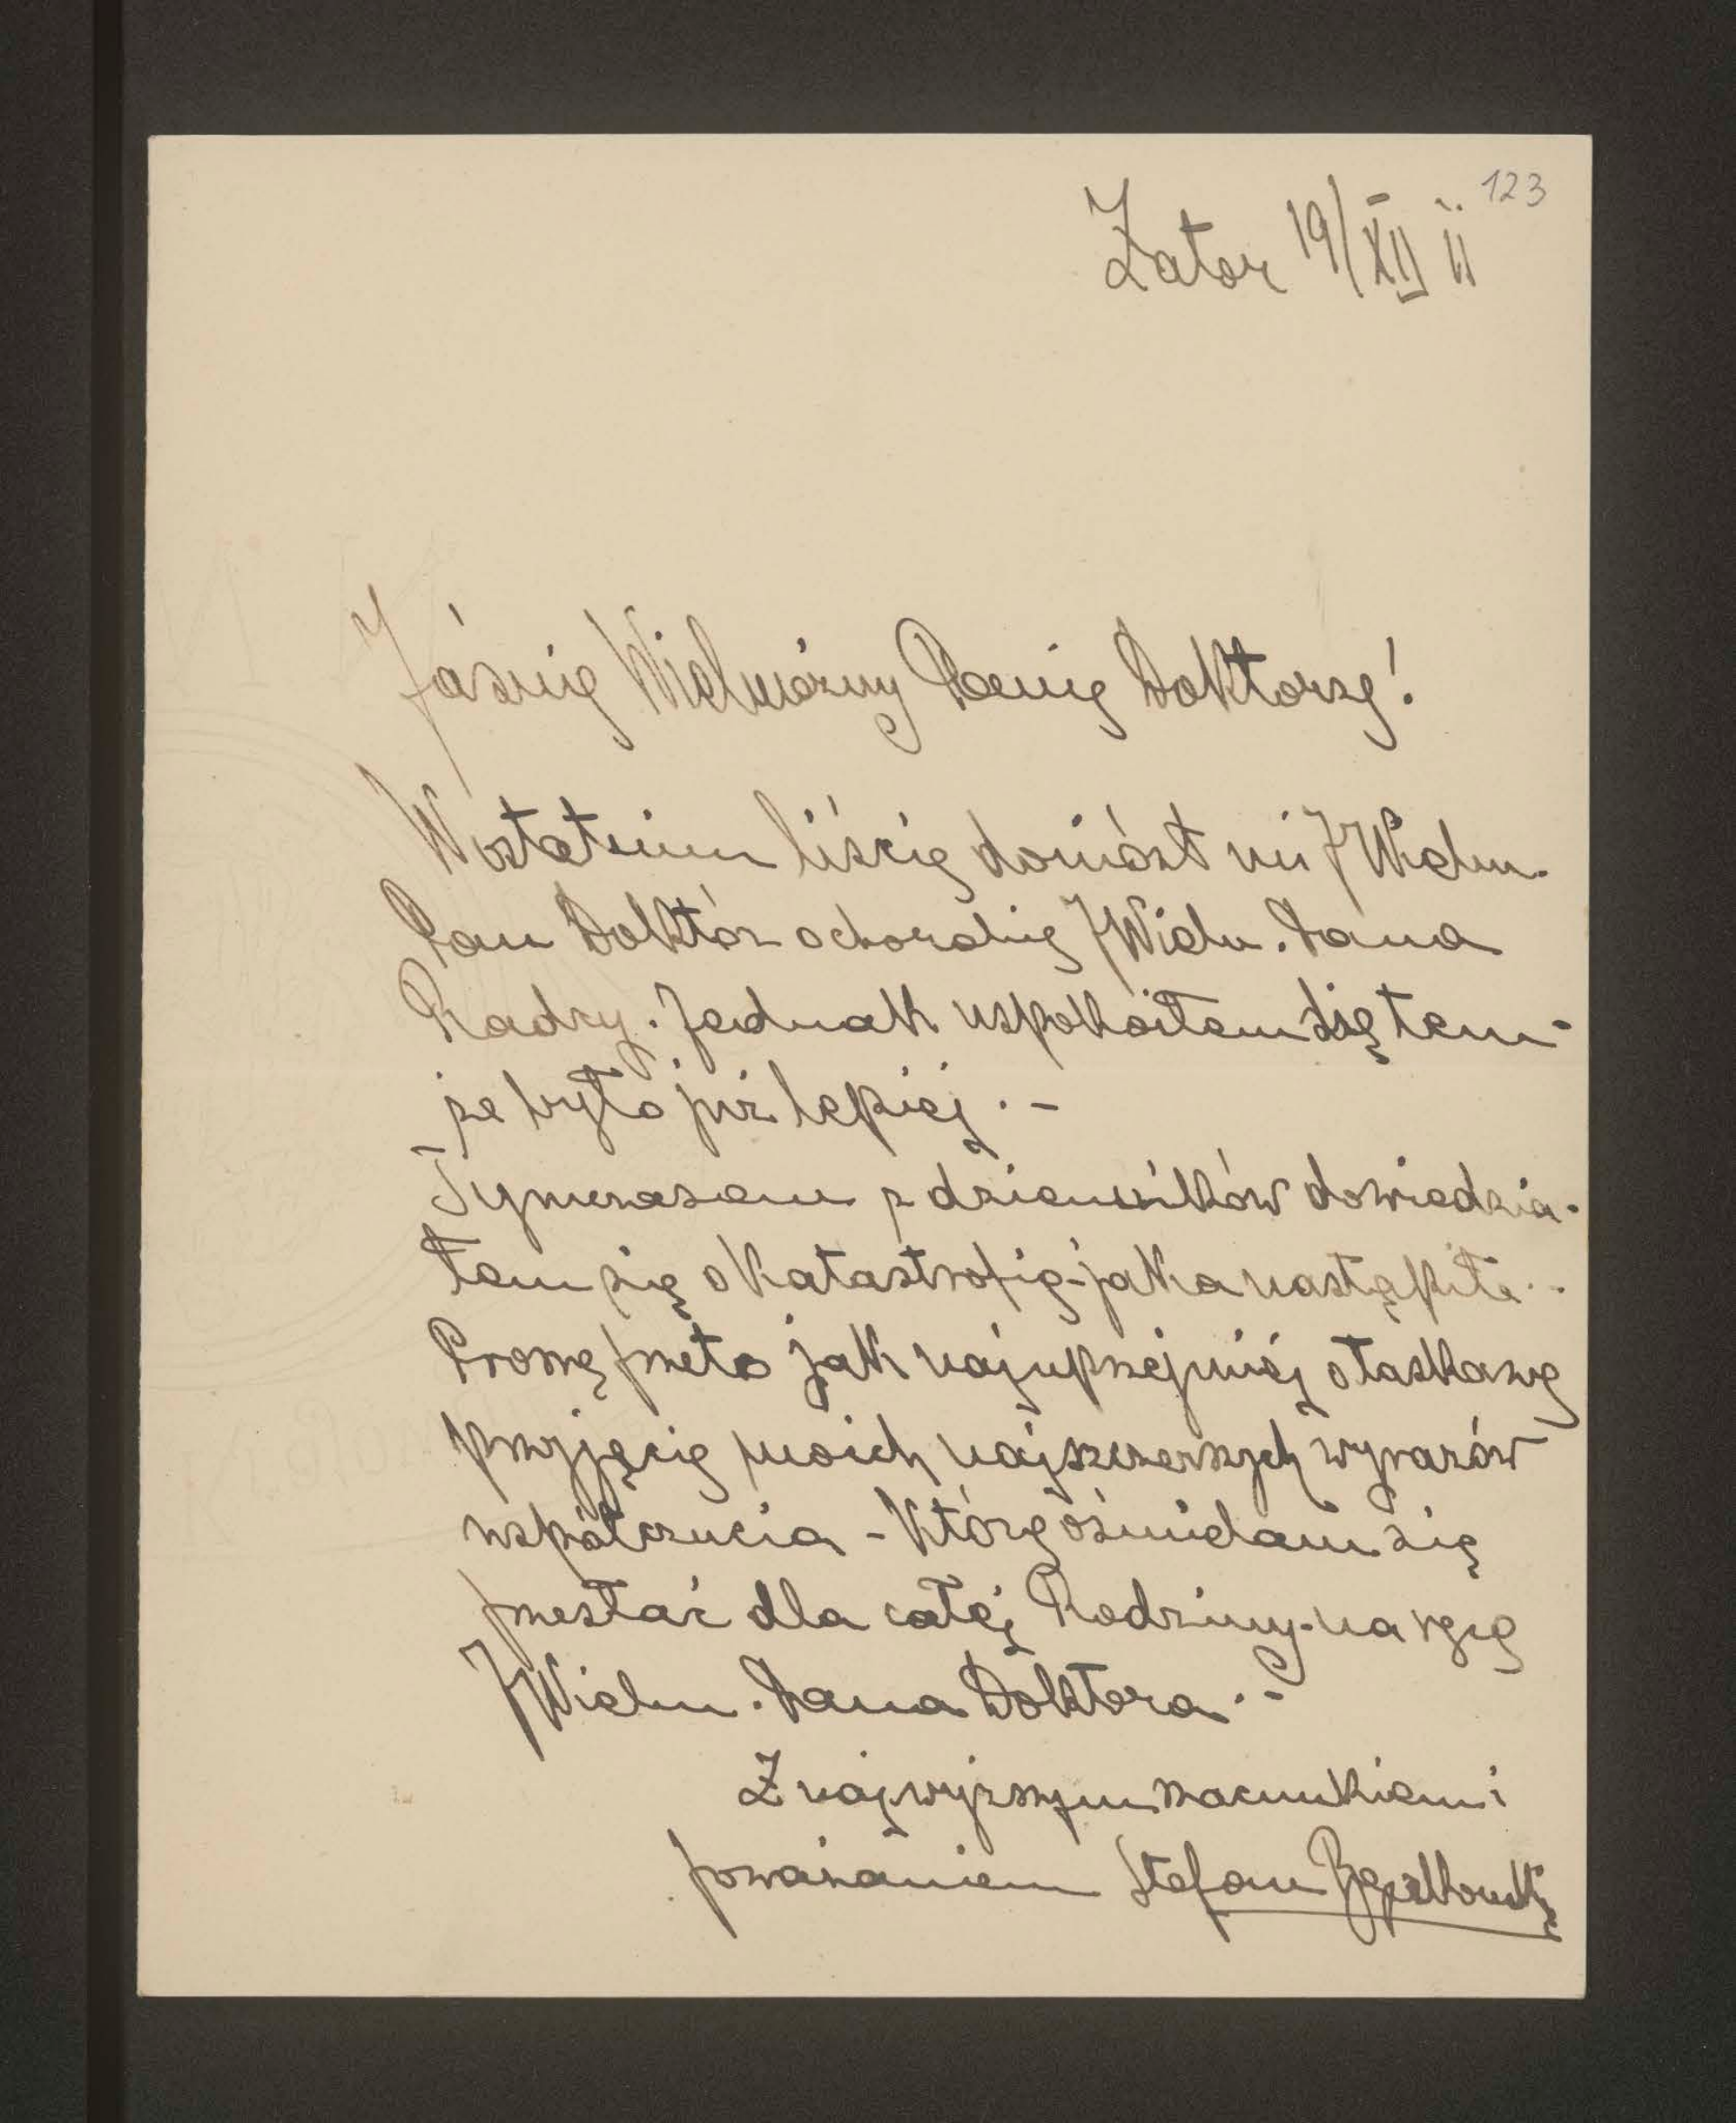 123
Zator 19/XII 11
Jáśnię Wielmożny Panię Doktorzę!
W ostatnim liścię doniósł mi JWielm.
Pan Doktór o chorobię JWielm. Pana
Radzy. Jednak uspokoiłem się tem-
że było już lepiej. –
Tymczasem z dzienników dowiedzia-
łem się o katastrofię-jaka nastąpiła..
Proszę przeto jak najuprzejmiej o łaskawę
przyjęcię moich najszczerszych wyrazów
współczucia - którę ośmielam się
przesłać dla całej Rodziny-na ręcę
JWielm. Pana Doktora. –
Z najwyższym szacunkiem i
poważaniem Stefan